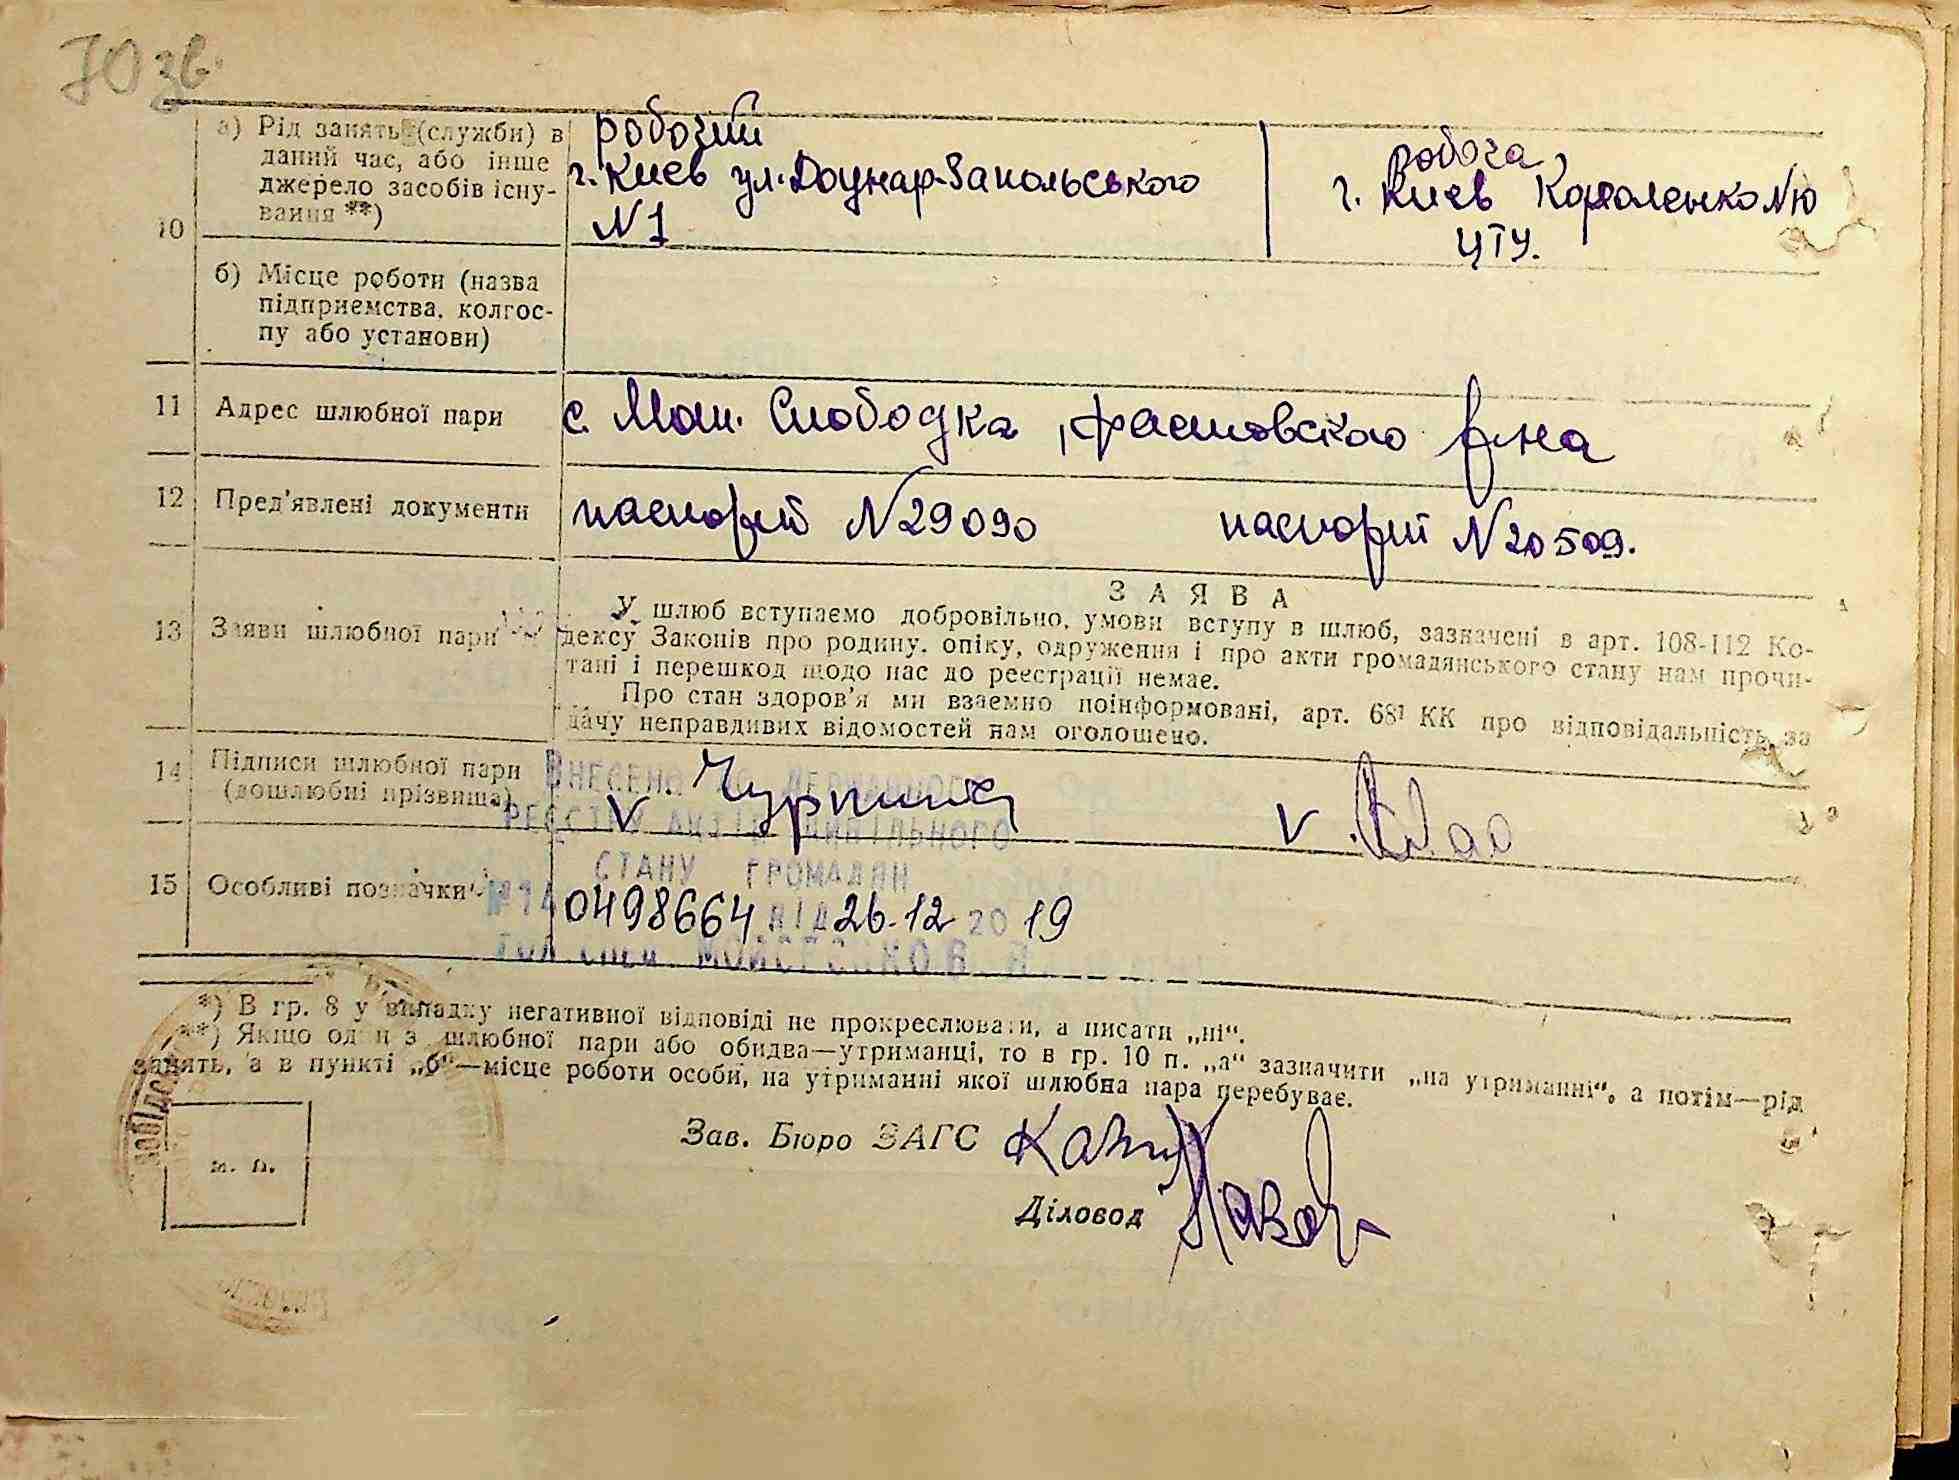 70 зв.
а) Рід занять (служби) в
даний час, або інше
джерело засобів існу-
вання **)
10
робочий
г. Киев ул. Доунар-Запольського
N 1
робоча
г. Киев Короленко N 10
ЦТУ.
б) Місце роботи (назва
підприємства, колгос-
пу або установи)
11 Адрес шлюбної пари
с. Мот. Слободка, Фастовского р-на
12 Пред'явлені документи
паспорт N 29090 паспорт N 20509.
13 Заяви шлюбної пари
ЗАЯВА
У шлюб вступаємо добровільно, умови вступу в шлюб, зазначені в арт. 108-112 Ко-
дексу Законів про родину, опіку, одруження і про акти громадянського стану нам прочи-
тані і перешкод щодо нас до реєстрації немає.
Про стан здоров'я ми взаємно поінформовані, арт. 68¹ КК про відповідальність за
дачу неправдивих відомостей нам оголошено.
14 Підписи шлюбної пари
(дошлюбні прізвища)
V V
ВНЕСЕНО ДО ДЕРЖАВНОГО
РЕЄСТРУ АКТІВ ЦИВІЛЬНОГО
СТАНУ ГРОМАДЯН
15 Особливі позначки
0498664 ВІД 26.12 2019
*) В гр. 8 у випадку негативної відповіді не прокреслювати, а писати „ні“.
**) Якщо один з шлюбної пари або обидва—утриманці, то в гр. 10 п. „а“ зазначити „на утриманні“, а потім—рід
занять, а в пункті „б“—місце роботи особи, на утриманні якої шлюбна пара перебуває.
Зав. Бюро ЗАГС
м. п.
Діловод